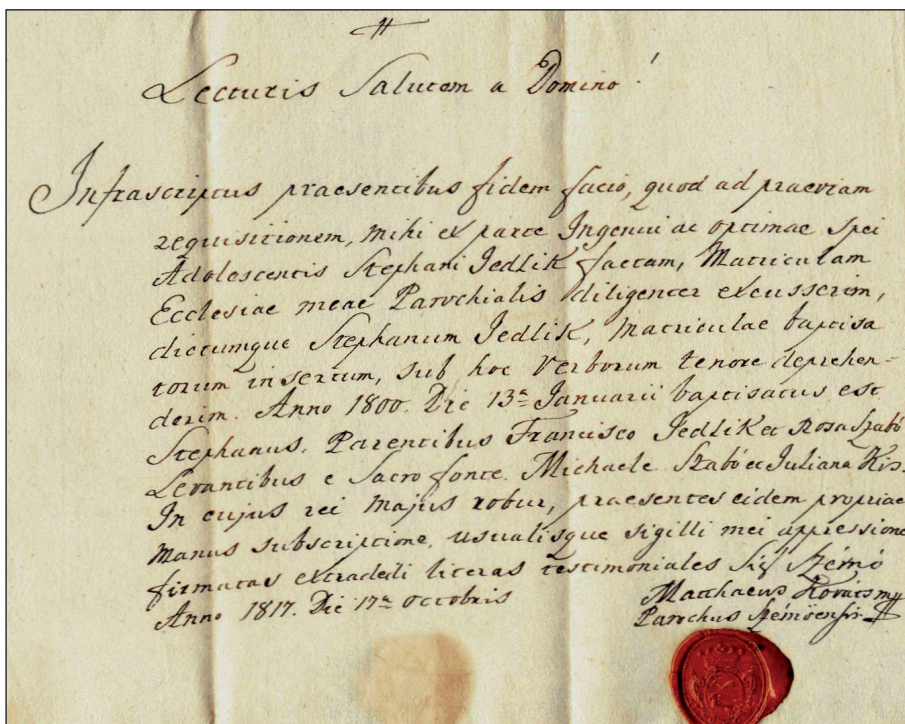 Lecturis Salutem a Domino!
Infrascriptus praesentibus fidem facio, quod ad praeviam
requisitionem, mihi ex parte Ingenui ac optimae Spei
Adolescentis Stephani Jedlik factam, Matriculam
Ecclesiae meae Parochialis diligenter excusserim,
dictumque Stephanum Jedlik, Matriculae baptisa
torum insertum, sub hoc Verborum tenore deprehen=
derim. Anno 1800. Die 13a Januarii baptisatus est
Stephanus. Parentibus Francisco Jedlik et Rosa Szabó
Levantibus e Sacro fonte. Michaele Szabó et Juliana Kis.
In cujus rei majus robur, praesentes eidem propriae
manus subscriptione, usualisque sigilli mei appressione
firmatas extradedi literas testimoniales Sig Szémö
Anno 1817. Die 17a Octobris Matthaeus Kovács mp
Parochus Szémöensis